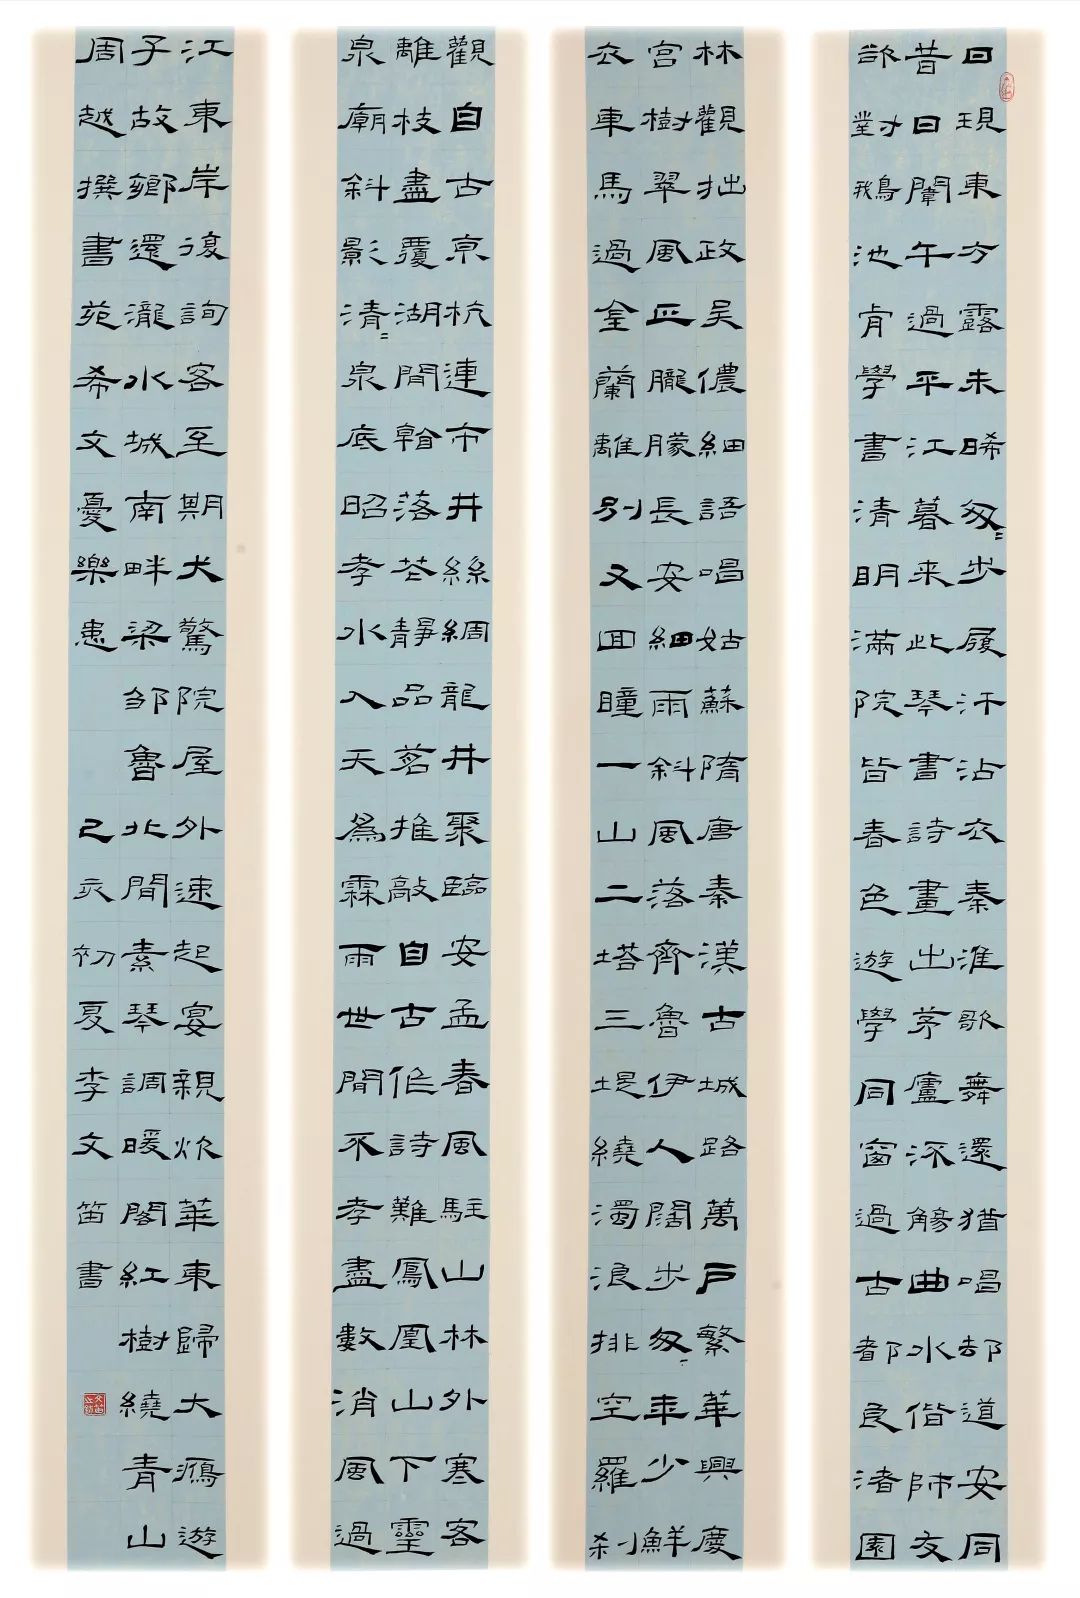 日現東方露未晞匆〻步履汗沾衣秦淮歌舞還猶唱却道安同
昔日闈午過平江暮来此琴書詩畫出茅廬深觴曲水偕師友
卻對鵝池肯學書清明滿院皆春色遊學同窗過古都良渚園
林觀拙政吳儂細語唱姑蘇隋唐秦漢古城路萬户繁華興慶
宫樹翠風正朧朦長安細雨斜風落齊魯伊人闊步匆〻年少鮮
衣車馬過金蘭離別又回瞳一山二塔三堤繞濁浪排空羅刹
觀自古京杭連市井絲綢龍井聚臨安孟春風駐山林外寒客
離枝盡覆湖間翰落花靜品茗推敲自古作詩難鳳凰山下靈
泉廟斜影清〻泉底昭孝水入天為霖雨世間不孝盡數消風過
江東岸復詢客至期犬驚院屋外速起宴親炊華東歸大鴻遊
子故鄉還瀧水城南畔梁邹魯北間素琴調暖閣紅樹繞青山
周越撰書苑希文憂樂患 己亥初夏李文笛書